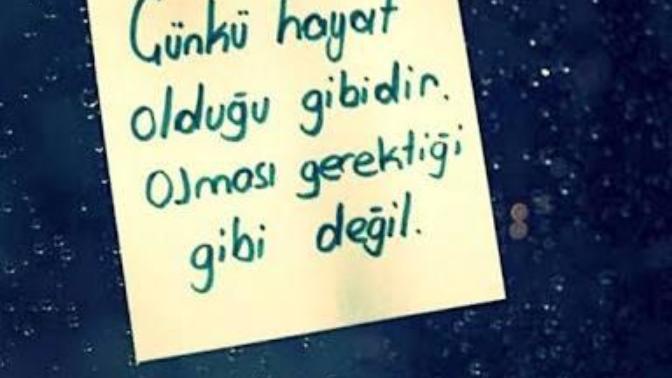 Çünkü hayat
olduğu gibidir.
Olması gerektiği
gibi değil.